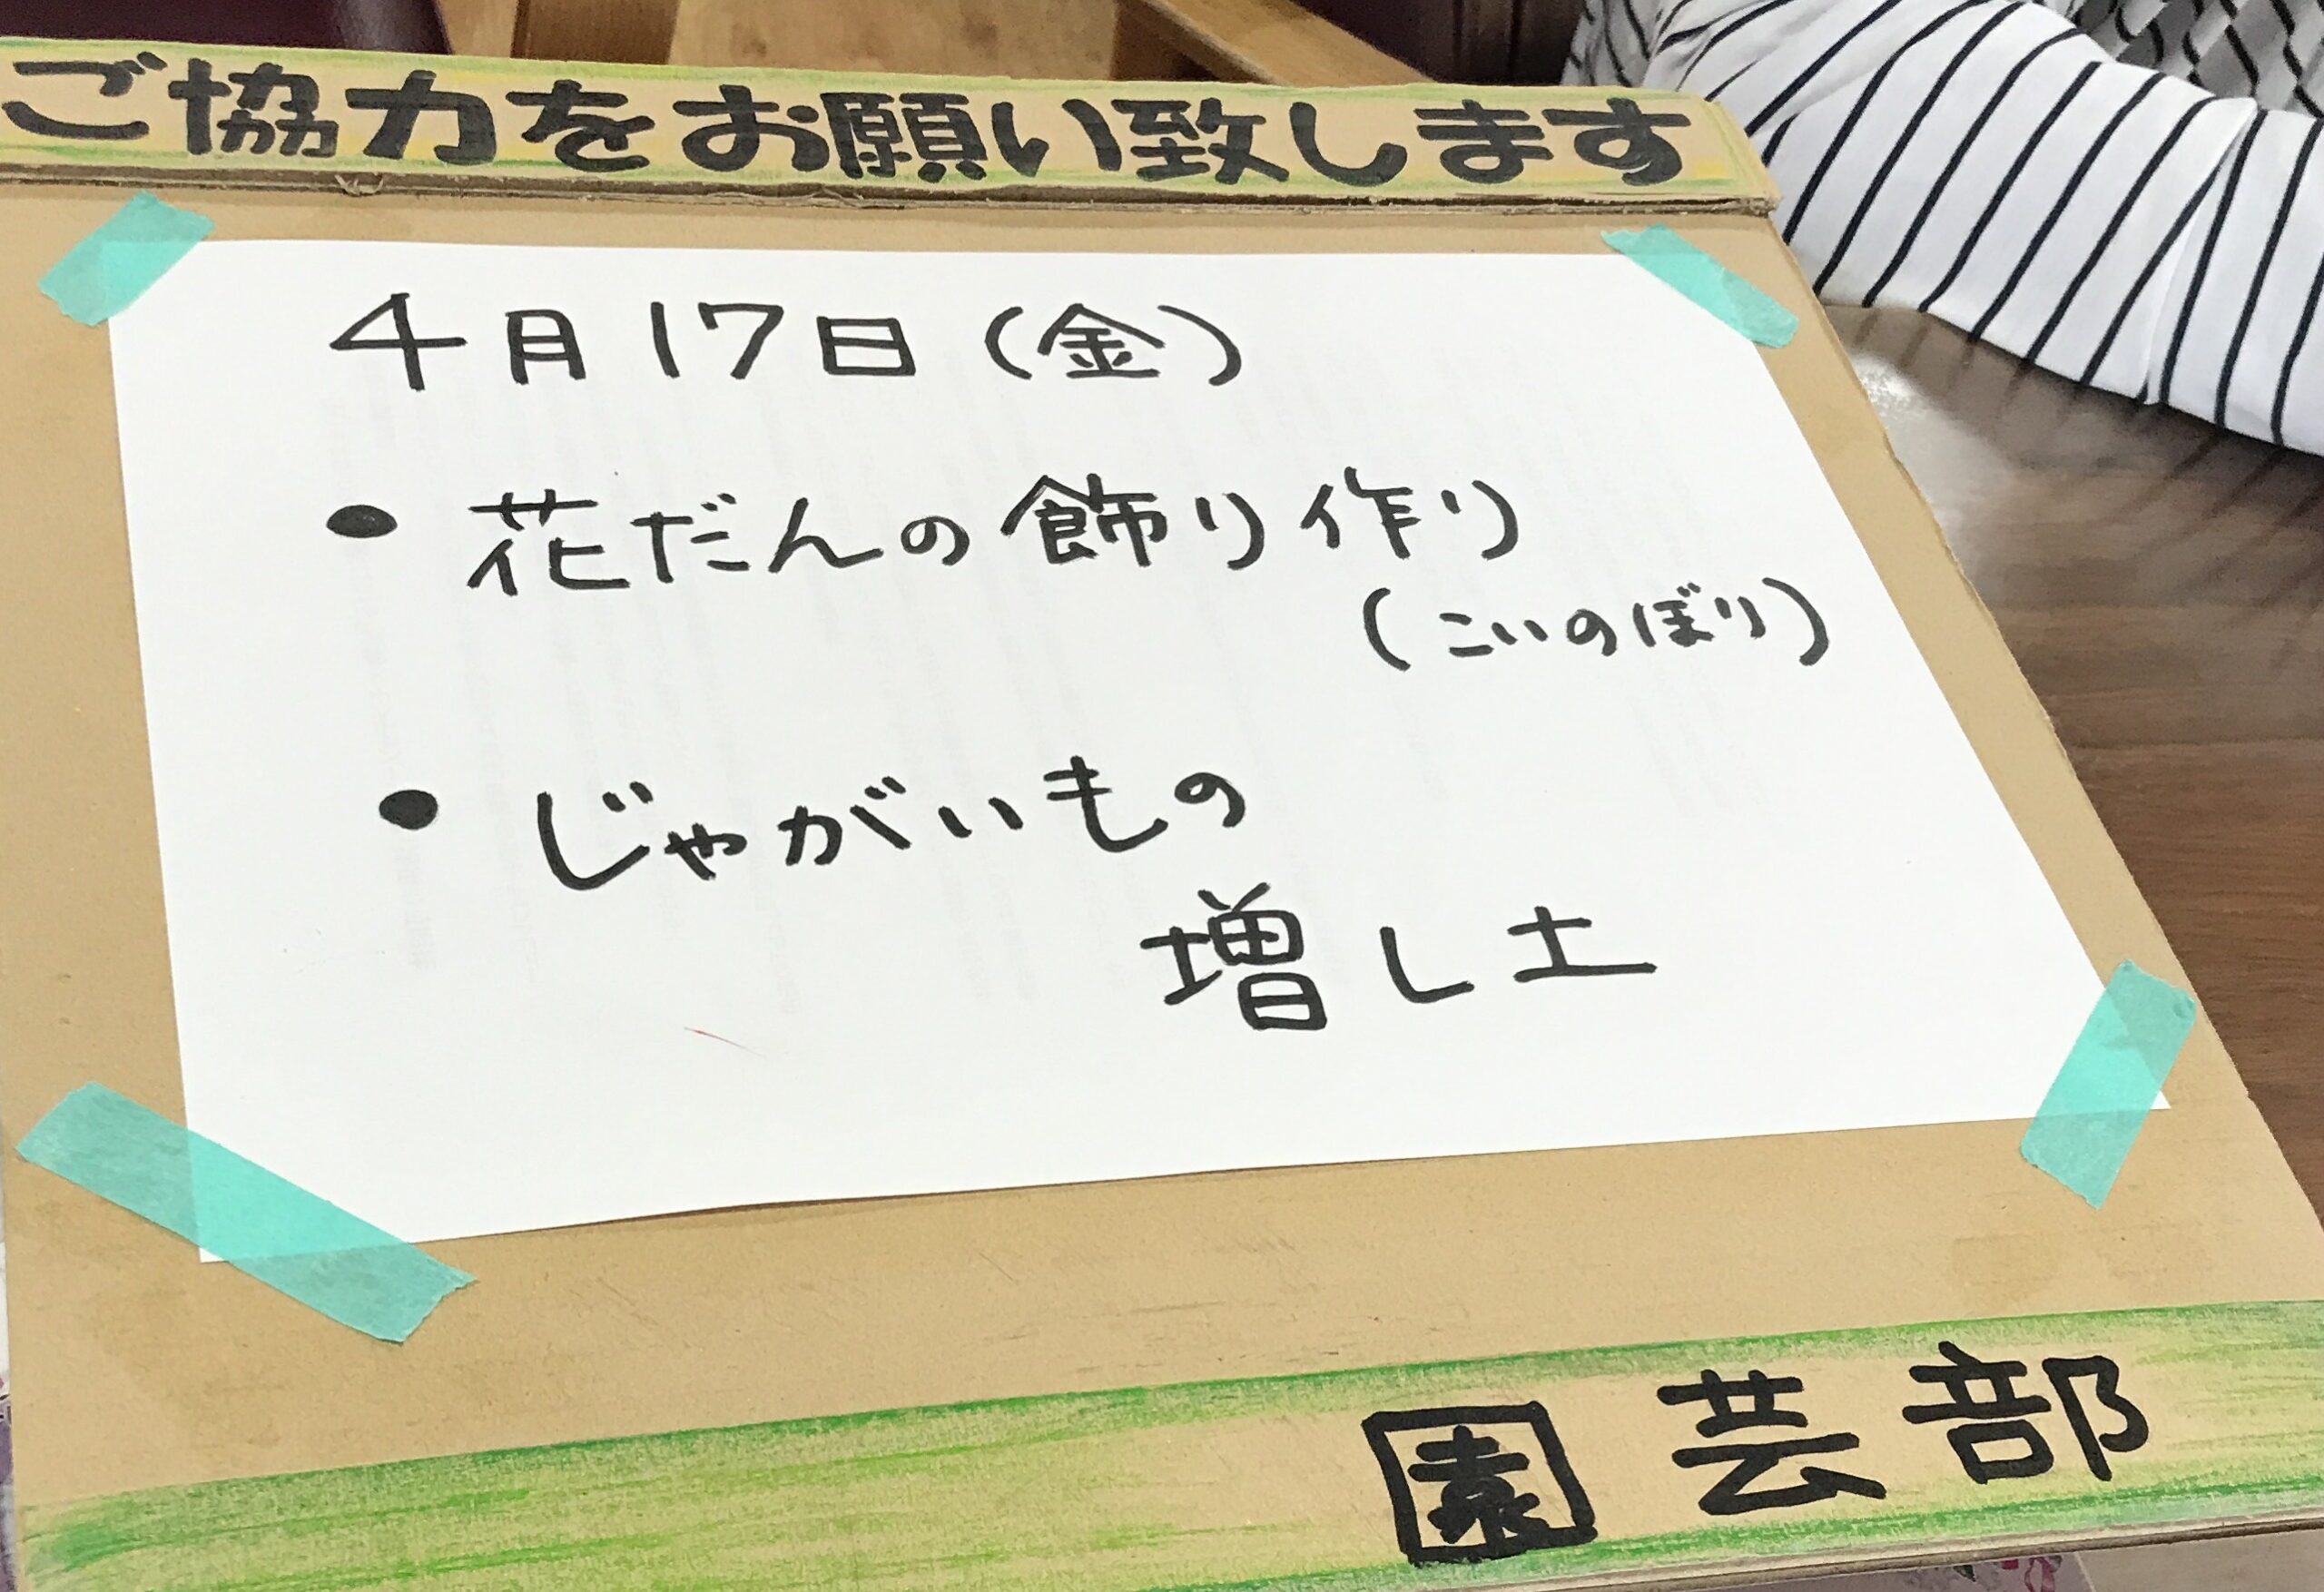 ご協力をお願い致します
4月17日(金)
・花だんの飾り作り
(こいのぼり)
・じゃがいもの
増し土
園芸部